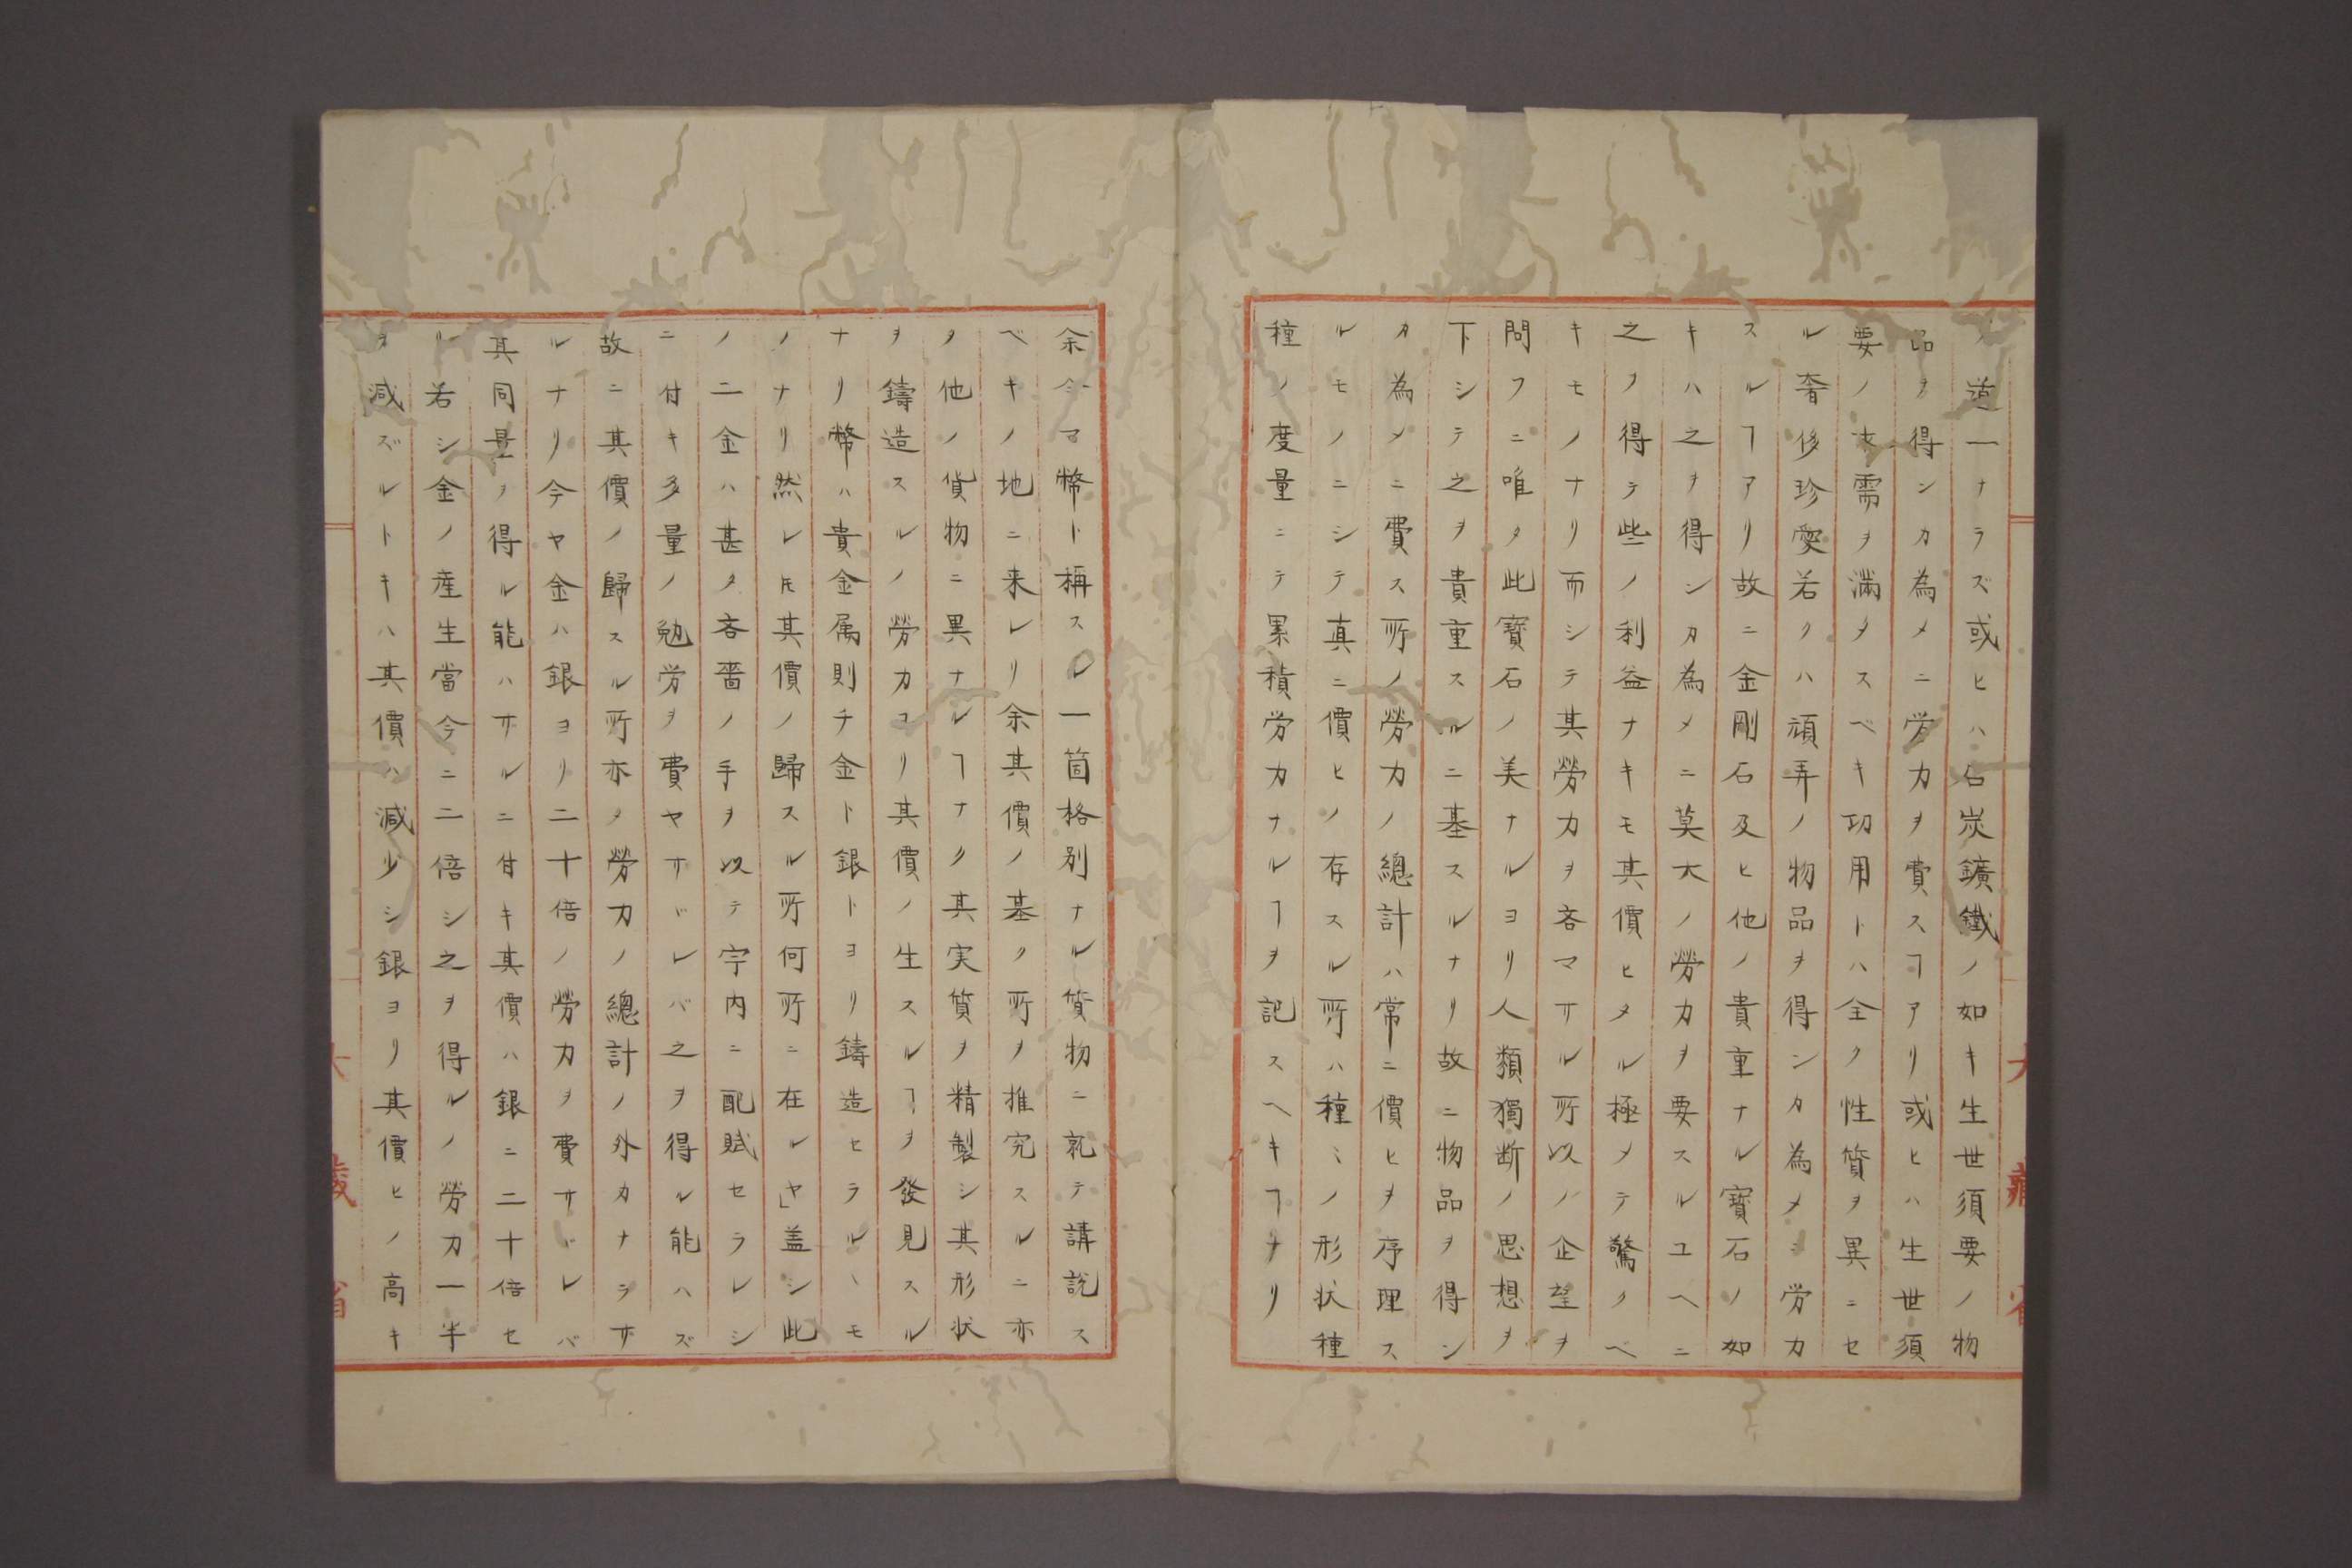 ノ道一ナラズ或ヒハ石炭鑛鐵ノ如キ生世須要ノ物
品ヲ得ンカ為メニ労力ヲ費スヿアリ或ヒハ生世須
要ノ需ヲ滿タスベキ功用トハ全ク性質ヲ異ニセ
ル奢侈珍愛若クハ頑弄ノ物品ヲ得ンカ為メニ労力
スルヿアリ故ニ金剛石及ヒ他ノ貴重ナル寶石ノ如
キハ之ヲ得ンカ為メニ莫大ノ勞力ヲ要スルユヘニ
之ヲ得テ些ノ利益ナキモ其價ヒタル極メテ驚クベ
キモノナリ而シテ其勞力ヲ吝マサル所以ノ企望ヲ
問フニ唯タ此寶石ノ美ナルヨリ人類獨断ノ思想ヲ
下シテ之ヲ貴重スルニ基スルナリ故ニ物品ヲ得ン
カ為メニ費ス所ノ勞力ノ總計ハ常ニ價ヒヲ序理ス
ルモノニシテ真ニ價ヒノ存スル所ハ種ミノ形状種
種ノ度量ニテ累積労力ナルヿヲ記スヘキヿナリ
余今マ幣ト稱スル一箇格別ナル貨物ニ就テ講説ス
ベキノ地ニ来レリ余其價ノ基ク所ヲ推究スルニ亦
タ他ノ貨物ニ異ナルヿナク其実質ヲ精製シ其形状
ヲ鑄造スルノ勞力ヨリ其價ノ生スルヿヲ發見スル
ナリ幣ハ貴金属則チ金ト銀トヨリ鑄造セラルヽモ
ノナリ然レ𪜈其價ノ歸スル所何所ニ在ルヤ」盖シ此
ノ二金ハ甚タ吝嗇ノ手ヲ以テ宇内ニ配賦セラレシ
ニ付キ多量ノ勉労ヲ費ヤサドレバ之ヲ得ル能ハズ
故ニ其價ノ歸スル所亦タ勞力ノ總計ノ外カナラサ
ルナリ今ヤ金ハ銀ヨリ二十倍ノ勞力ヲ費サドレバ
其同量ノ得ル能ハサルニ付キ其價ハ銀ニ二十倍セ
リ若シ金ノ産生當今ニ二倍シ之ヲ得ルノ勞力一半
ヲ減ズルトキハ其價ハ減少シ銀ヨリ其價ヒノ高キ
大藏省
大藏省